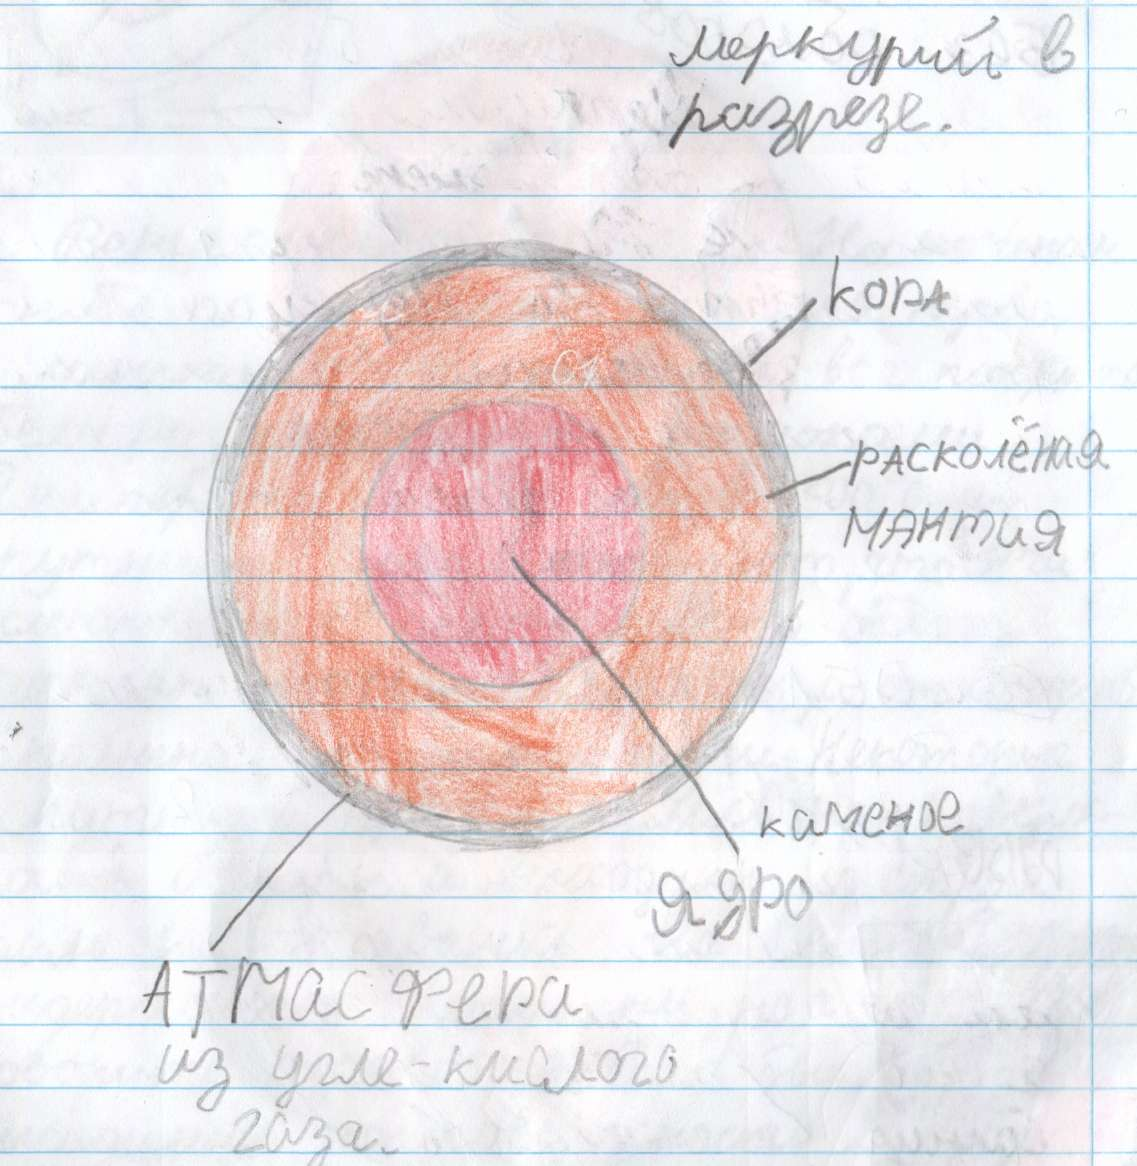 меркурий в
разрезе.
кора
расколёная
мантия
каменое
ядро
Атмасфера
из угле-кислого
газа.